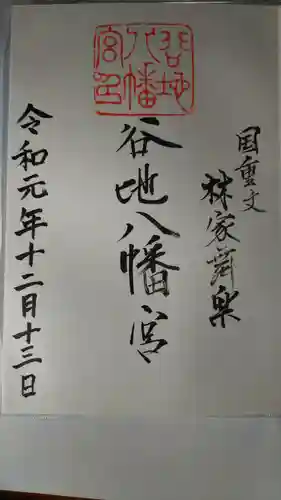 国重文
林家舞楽
谷地八幡宮
谷地八幡宮印
令和元年十二月十三日